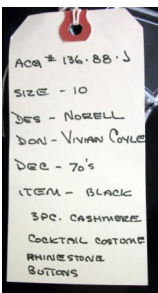 ACQ # 136.88.J
SIZE - 10
DES - NORELL
DON - VIVIAN COYLE
DEC - 70's
ITEM - BLACK
3PC. CASHMERE
COCKTAIL COSTOME
RHINESTONE
BUTTONS